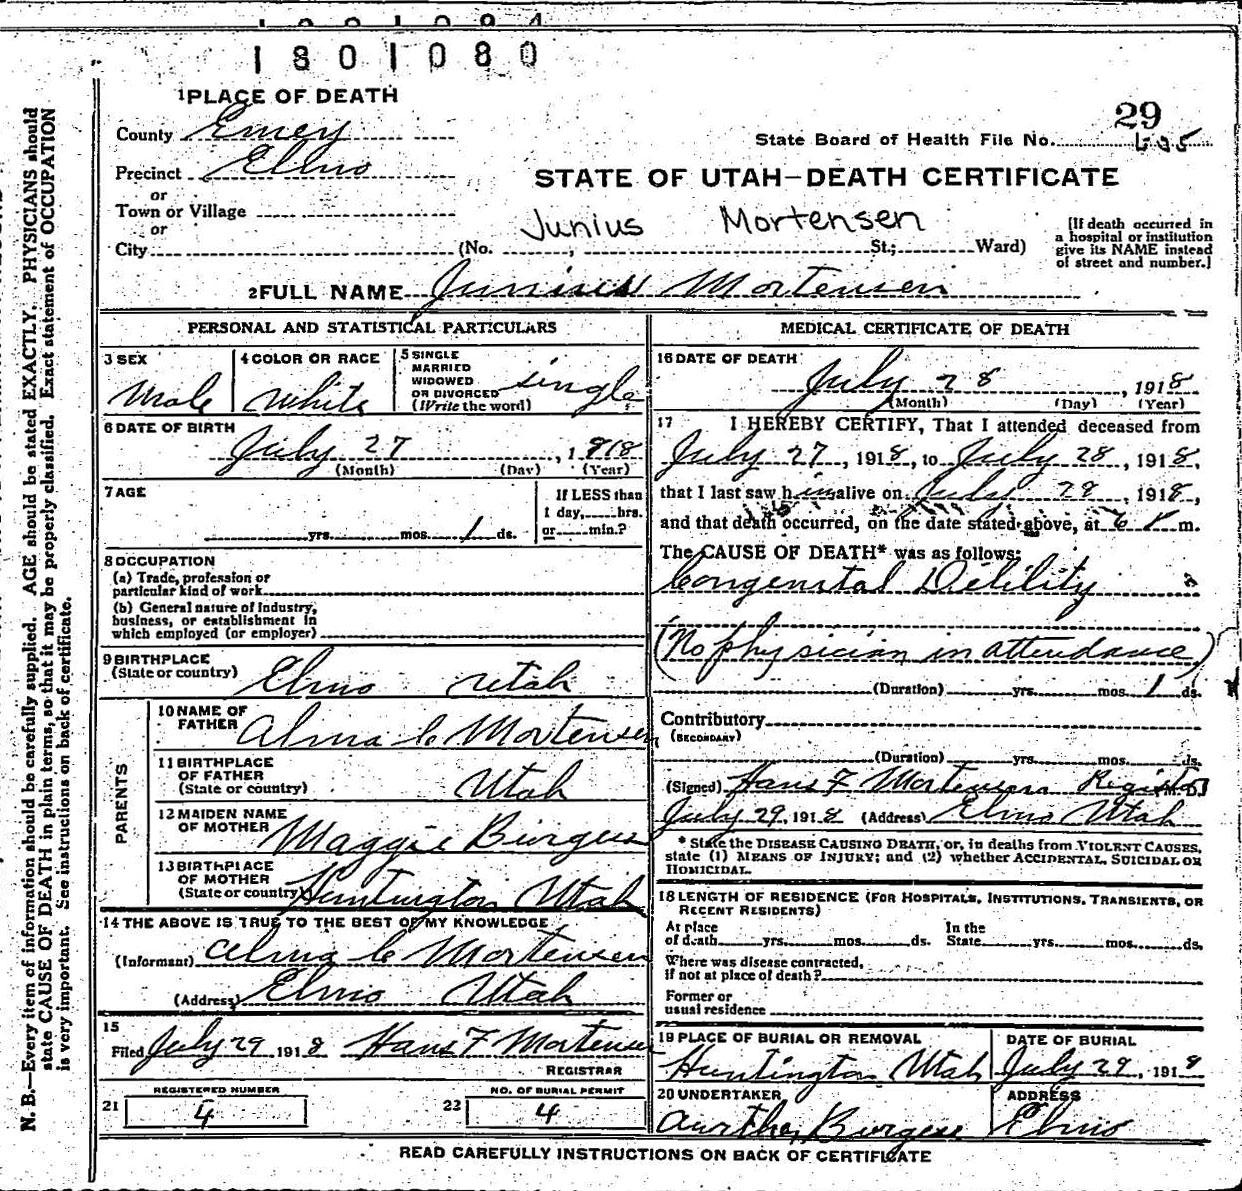 1801080
1 PLACE OF DEATH
County Emery
Precinct Elmo
or
Town or Village
or
City (No. , St.; Ward)
29
State Board of Health File No. 605
STATE OF UTAH—DEATH CERTIFICATE
Junius Mortensen
[If death occurred in
a hospital or institution
give its NAME instead
of street and number.]
2 FULL NAME Junius Mortensen
PERSONAL AND STATISTICAL PARTICULARS
3 SEX
Male
4 COLOR OR RACE
White
5 SINGLE
MARRIED
WIDOWED
OR DIVORCED
(Write the word)
single
6 DATE OF BIRTH
July 27, 1918
(Month) (Day) (Year)
7 AGE
yrs. mos. 1 ds.
If LESS than
1 day, hrs.
or min.?
8 OCCUPATION
(a) Trade, profession or
particular kind of work
(b) General nature of industry,
business, or establishment in
which employed (or employer)
9 BIRTHPLACE
(State or country)
Elmo Utah
PARENTS
10 NAME OF
FATHER
Alma C Mortensen
11 BIRTHPLACE
OF FATHER
(State or country)
Utah
12 MAIDEN NAME
OF MOTHER
Maggie Burgess
13 BIRTHPLACE
OF MOTHER
(State or country)
Huntington Utah
14 THE ABOVE IS TRUE TO THE BEST OF MY KNOWLEDGE
(Informant) Alma C Mortensen
(Address) Elmo Utah
15
Filed July 29 1918 Hans F Mortensen
REGISTRAR
REGISTERED NUMBER
21 4
NO. OF BURIAL PERMIT
22 4
MEDICAL CERTIFICATE OF DEATH
16 DATE OF DEATH
July 28, 1918
(Month) (Day) (Year)
17 I HEREBY CERTIFY, That I attended deceased from
July 27, 1918, to July 28, 1918,
that I last saw him alive on July 28, 1918,
and that death occurred, on the date stated above, at 6 m.
The CAUSE OF DEATH* was as follows:
Congenital Debility
(No physician in attendance)
(Duration) yrs. mos. 1 ds.
Contributory
(SECONDARY)
(Duration) yrs. mos. ds.
(Signed) Hans F Mortensen Registrar
July 29, 1918 (Address) Elmo Utah
* State the DISEASE CAUSING DEATH, or, in deaths from VIOLENT CAUSES,
state (1) MEANS OF INJURY; and (2) whether ACCIDENTAL, SUICIDAL OR
HOMICIDAL.
18 LENGTH OF RESIDENCE (FOR HOSPITALS, INSTITUTIONS, TRANSIENTS, OR
RECENT RESIDENTS)
At place
of death yrs. mos. ds.
In the
State yrs. mos. ds.
Where was disease contracted,
if not at place of death?
Former or
usual residence
19 PLACE OF BURIAL OR REMOVAL
Huntington Utah
DATE OF BURIAL
July 29, 1918
20 UNDERTAKER
Aurthor Burgess
ADDRESS
Elmo
READ CAREFULLY INSTRUCTIONS ON BACK OF CERTIFICATE
N. B.—Every item of information should be carefully supplied. AGE should be stated EXACTLY. PHYSICIANS should
state CAUSE OF DEATH in plain terms, so that it may be properly classified. Exact statement of OCCUPATION
is very important. See instructions on back of certificate.